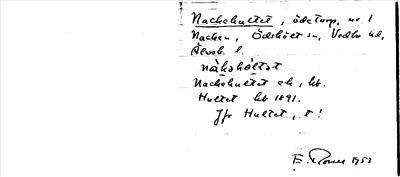 Nackehultet, ödetorp, nr 1
Nacken, Ödskölt sn, Vedbo hd,
Älvsb. l.
nàkəhὰltət
Nackehultet ek, hb.
Hultet hb 1891.
Jfr Hultet, t!
E. 1953